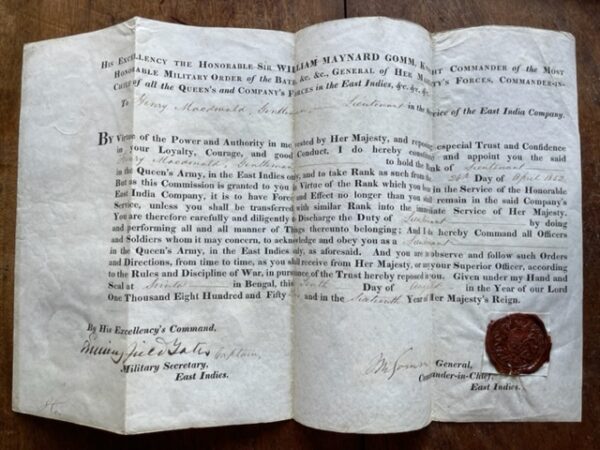 His Excellency the Honorable Sir William Maynard Gomm, Knight Commander of the Most
Honorable Military Order of the Bath, &c. &c., General of Her Majesty's Forces, Commander-in-
Chief of all the Queen's and Company's Forces in the East Indies, &c. &c. &c.
To Henry Macdonald, Gentleman Lieutenant in the Service of the East India Company.
By Virtue of the Power and Authority in me vested by Her Majesty, and reposing especial Trust and Confidence
in your Loyalty, Courage, and good Conduct, I do hereby constitute and appoint you the said
Henry Macdonald, Gentleman to hold the Rank of Lieutenant
in the Queen's Army, in the East Indies only, and to take Rank as such from the Day of April 1852.
But as this Commission is granted to you in Virtue of the Rank which you bear in the Service of the Honorable
East India Company, it is to have Force and Effect no longer than you shall remain in the said Company's
Service, unless you shall be transferred with similar Rank into the immediate Service of Her Majesty.
You are therefore carefully and diligently to Discharge the Duty of Lieutenant by doing
and performing all and all manner of Things thereunto belonging; And I do hereby Command all Officers
and Soldiers whom it may concern, to acknowledge and obey you as a Lieutenant
in the Queen's Army, in the East Indies only, as aforesaid. And you are to observe and follow such Orders
and Directions, from time to time, as you shall receive from Her Majesty, or any your Superior Officer, according
to the Rules and Discipline of War, in pursuance of the Trust hereby reposed in you. Given under my Hand and
Seal at Simla in Bengal, this Tenth Day of August in the Year of our Lord
One Thousand Eight Hundred and Fifty and in the Sixteenth Year of Her Majesty's Reign.
By His Excellency's Command,
Captain,
Military Secretary,
East Indies.
W Gomm General,
Commander-in-Chief,
East Indies.